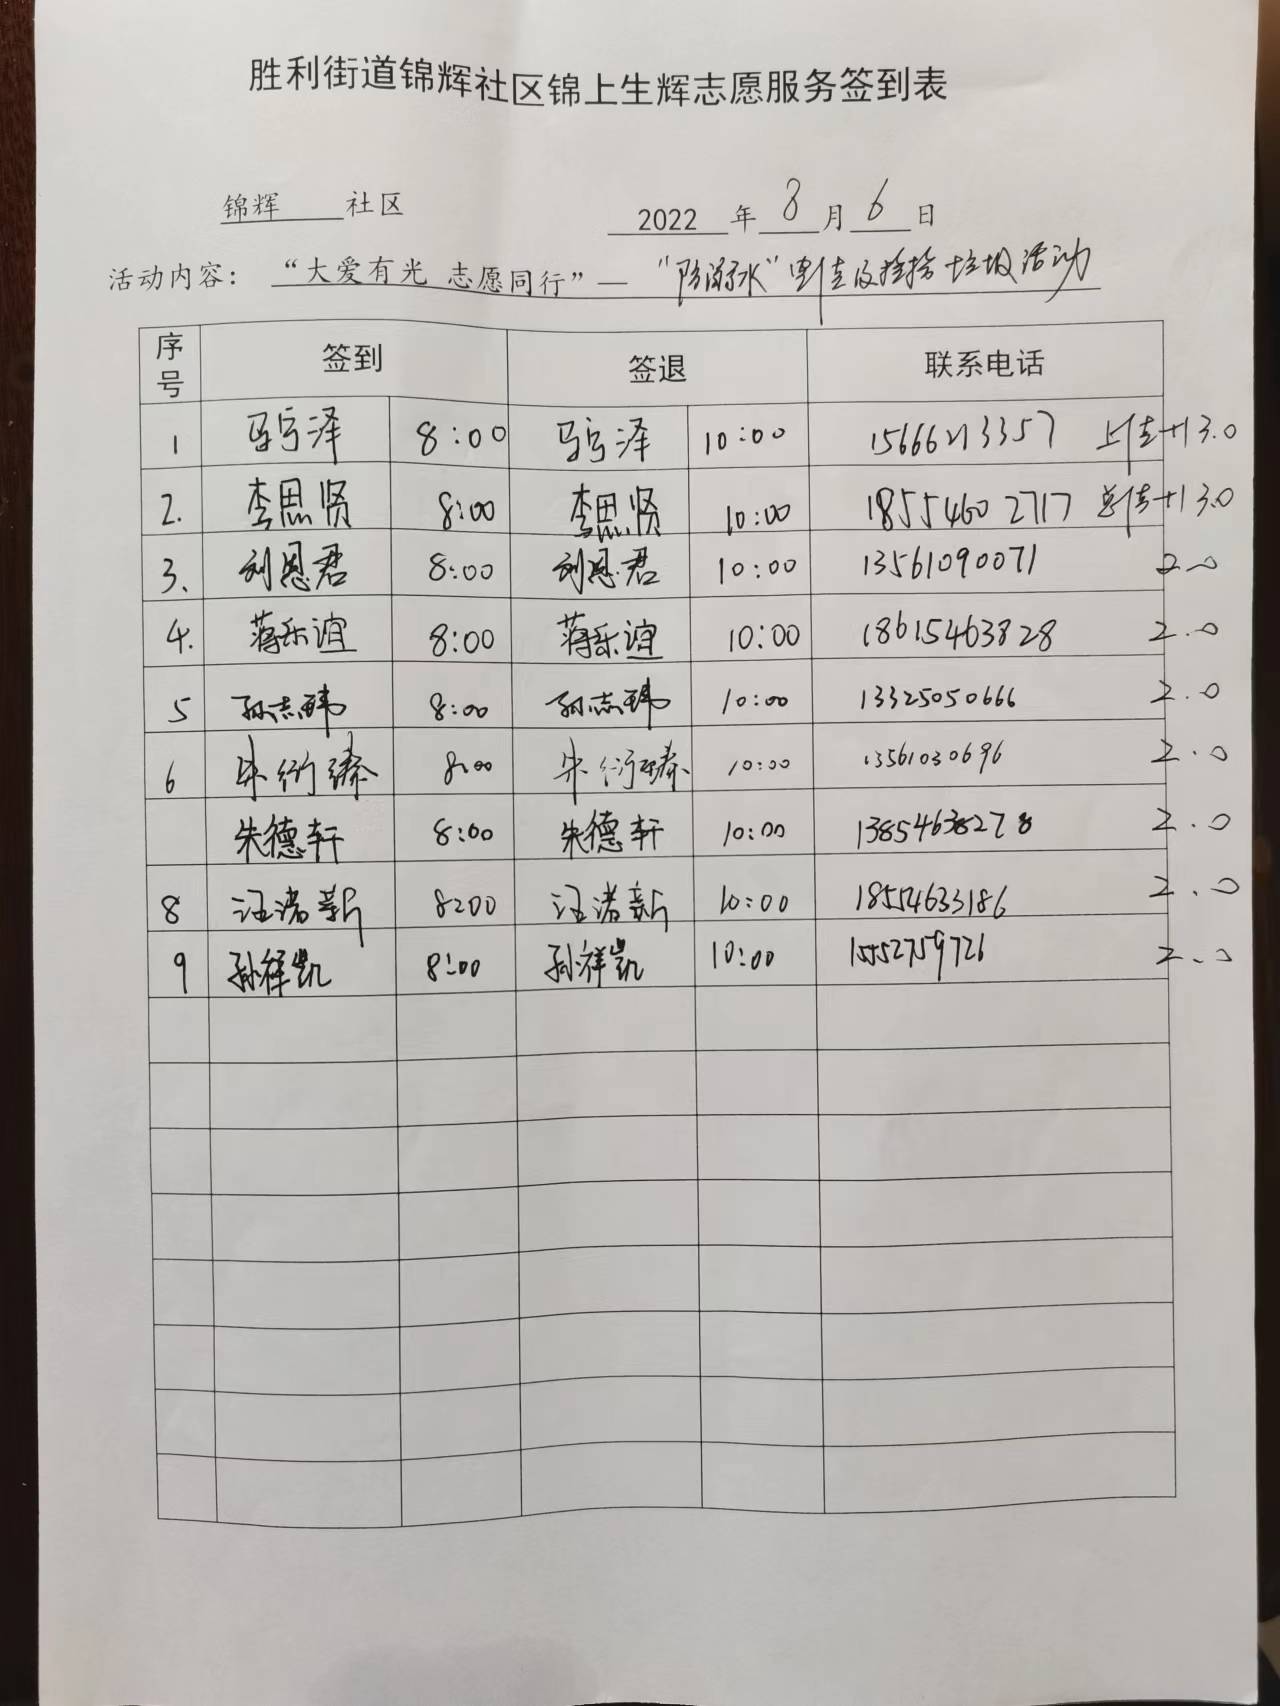 胜利街道锦辉社区锦上生辉志愿服务签到表
锦辉 社区 2022 年 8 月 6 日
活动内容： “大爱有光 志愿同行”— “防溺水”宣传及捡拾垃圾活动
序号 签到 签退 联系电话
1 马宁泽 8:00 马宁泽 10:00 15666213357 +1 3.0
2. 李思贤 8:00 李思贤 10:00 18554602717 +1 3.0
3. 刘恩君 8:00 刘恩君 10:00 13561090071 2.0
4. 蒋乐谊 8:00 蒋乐谊 10:00 18615463828 2.0
5 孙志玮 8:00 孙志玮 10:00 13325050666 2.0
6 牛衍臻 8:00 牛衍臻 10:00 13561030696 2.0
朱德轩 8:00 朱德轩 10:00 13854638278 2.0
8 汪渚新 8:00 汪渚新 10:00 18554633186 2.0
9 孙祥凯 8:00 孙祥凯 10:00 15552759726 2.0